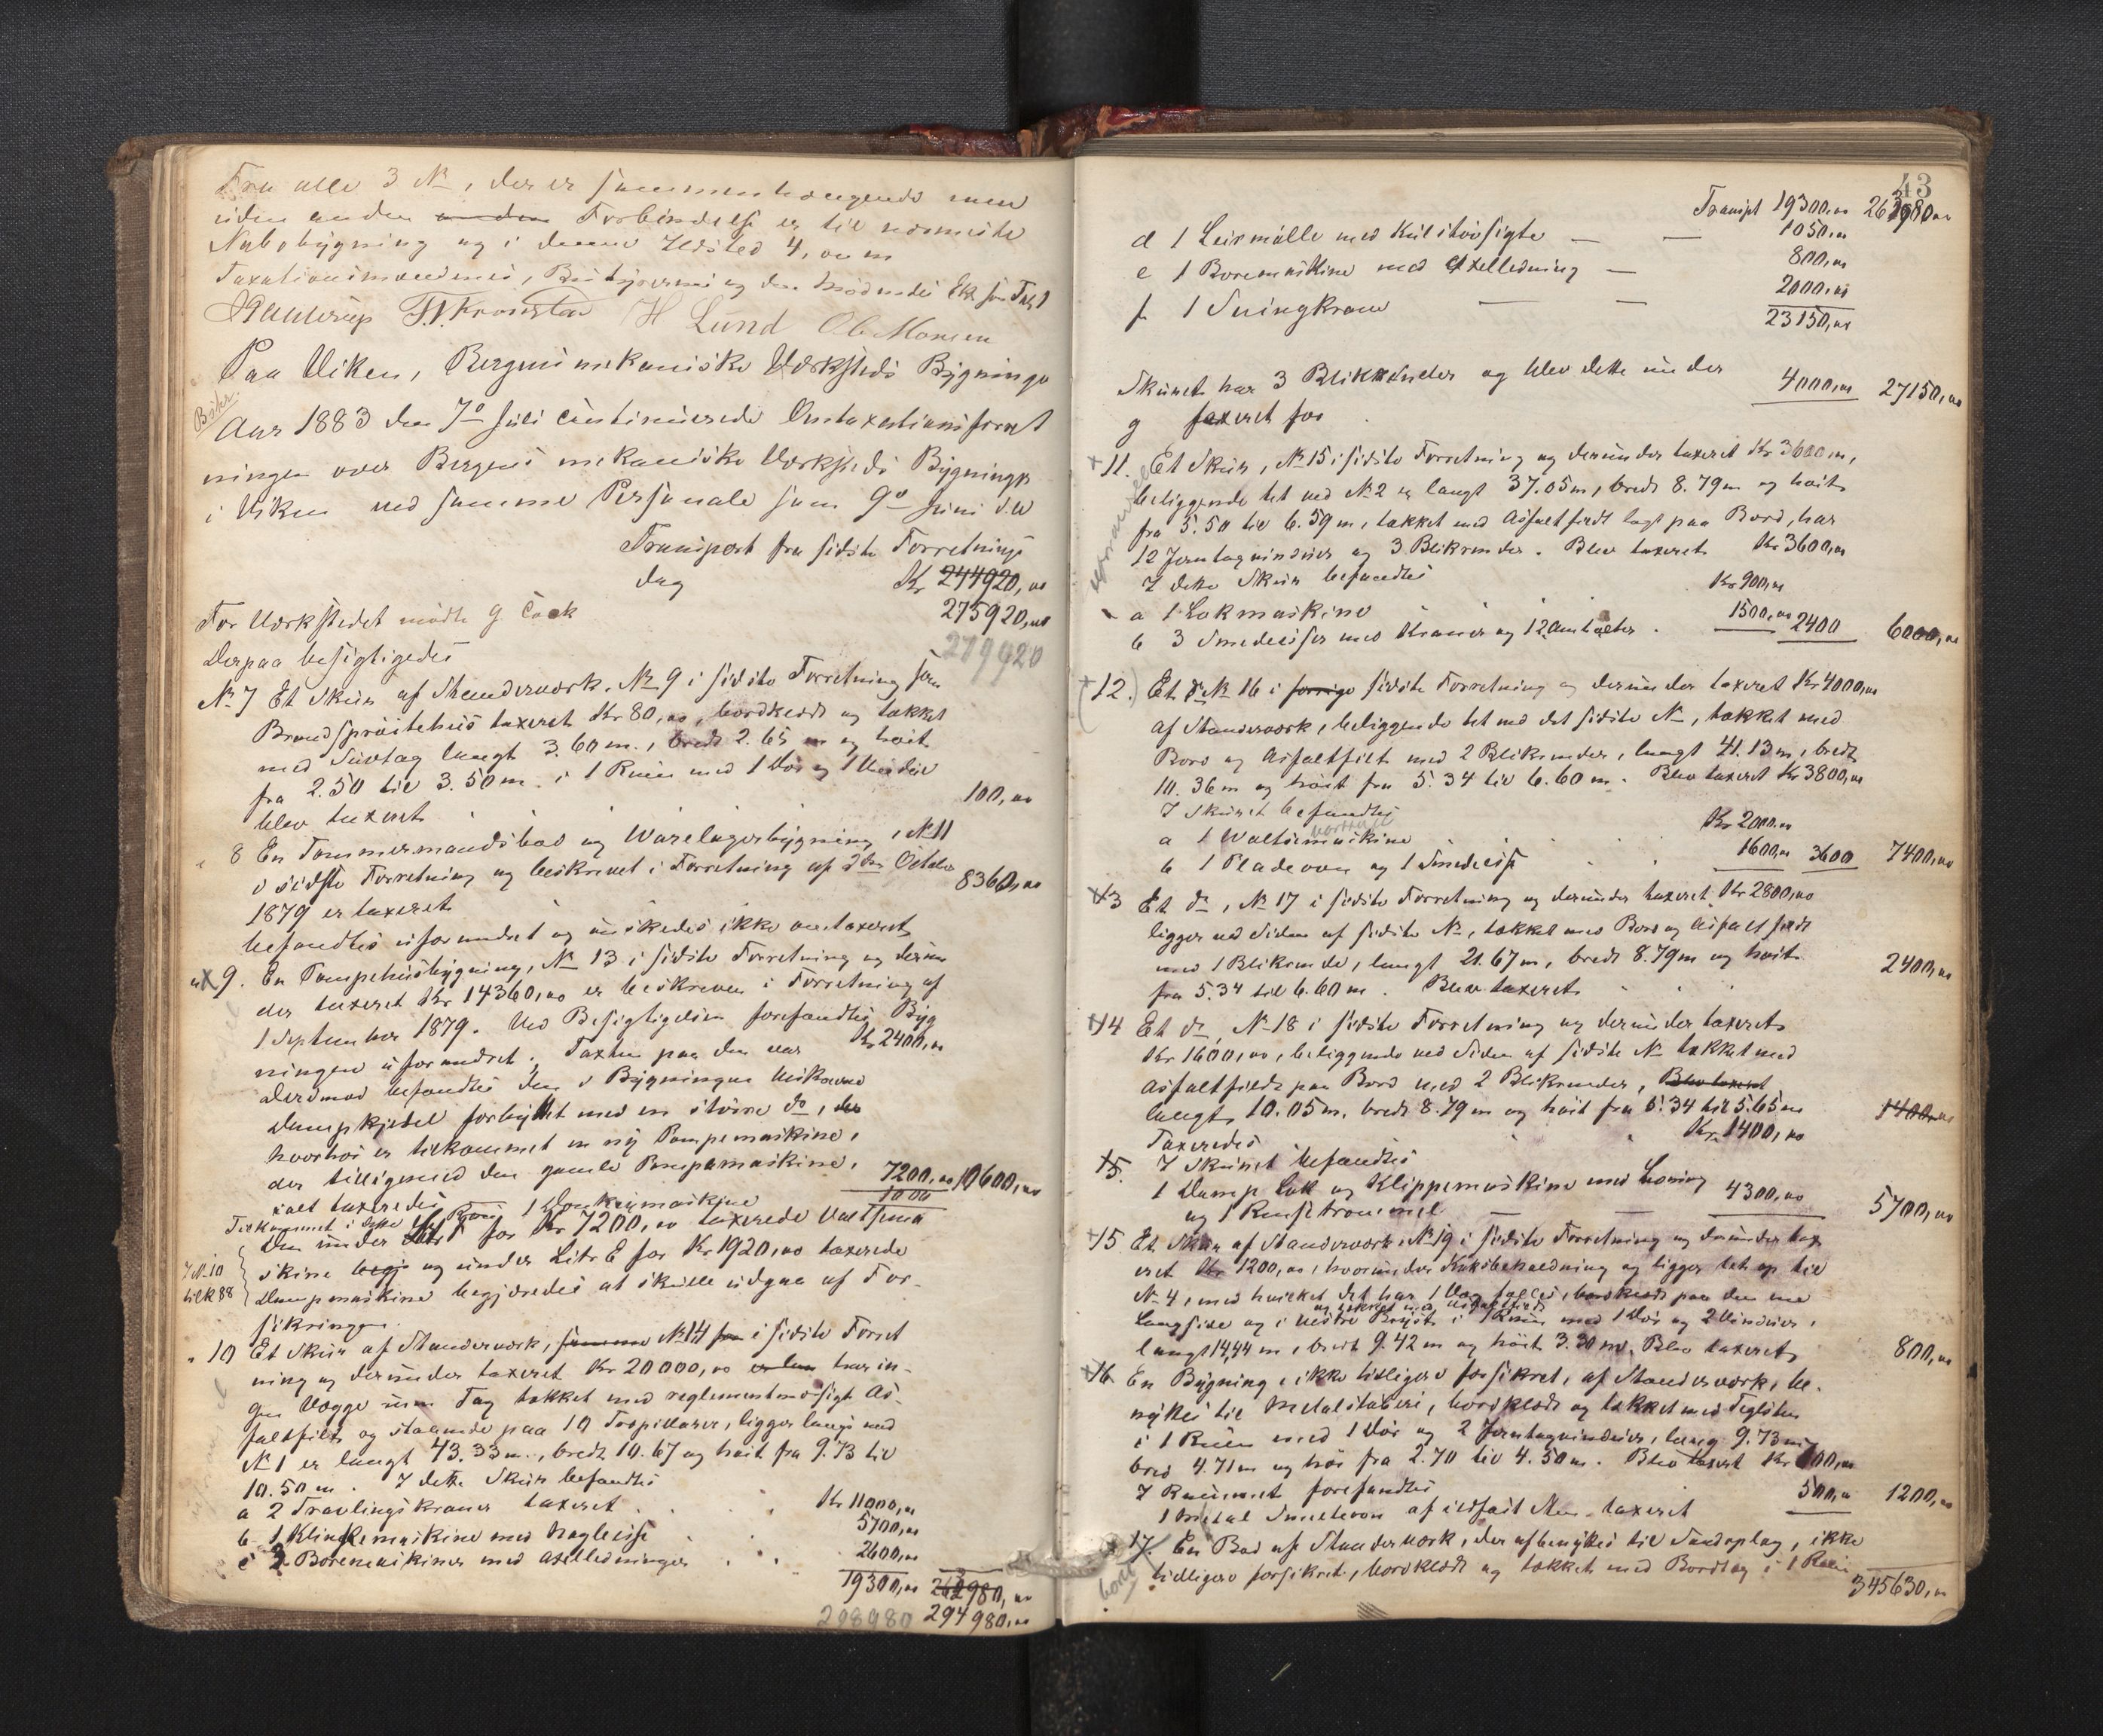 Fra alle 3 No, der er sammenhængende men
uden anden Forbindelse er til nærmeste
Nabobygning og i denne Ildsted 4, 00 m
Taxationsmændenes, Bestyrerens og den mødendes Ek for Tak 1
H Lund Ol. Monsen
Paa Viken, Bergens mekaniske Værksteds Bygninge
Beskr.
Aar 1883 den 7de Juli continuerede Omtaxationsforret
ningen over Bergens mekaniske Værksteds Bygninger
i Viken med samme Personale som 9de Juni d.A
Transport fra sidste Forretnings
dag Kr 244920,00
275920,00
For Værkstedet mødte g Cock
279920
Derpaa besigtigedes
No 7 Et Skur af Stenderværk, No 9 i sidste Forretning som
Brandsprøitehus taxeret Kr 80,00, bordklædt og takket
med Suetag langt 3.60 m., bredt 2.65 m og høit
fra 2.50 til 3.50 m. i 1 Rum med 1 Dør og 1 Vindue
blev taxeret 100,00
8 En Tømmermandsbod og Varelagerbygning, No 11
i sidste Forretning og beskrevet i Forretning af 2den October
1879 er taxeret 8360,00
befandtes uforandret og ønskedes ikke omtaxeret
x 9. En Pumpehusbygning, No 13 i sidste Forretning og derun
der taxeret Kr 14360,00 er beskreven i Forretning af
1 September 1879. Ved Besigtigelsen forefandtes Byg
ningen uforandret. Taxten paa den var Kr 2400,00
Derimod befandtes den i Bygningen
Dampkjedel forbyttet med en større do,
hvorhos er tilkommet en ny Pumpemaskine,
der tilligemed den gamle Pumpemaskine,
ialt taxeredes 7200,00 10600,00
Tilkommet i dette Rum 1 Donkeymaskine 1000
Den under Litr F for Kr 7200,00 taxerede Valtsema
skine og under Litr E for Kr 1920,00 taxerede
Dampmaskine begjæredes at skulle udgaa af For-
sikringen.
I No 10
til K 88
10 Et Skur af Stenderværk, No 14 i sidste Forret
ning og derunder taxeret Kr 20000,00 har in-
gen Vægge men Tag takket med reglementmæsigt As-
faltfilt og staaende paa 10 Træpillarer, ligger langs med
No 1 er langt 43.33 m., bredt 10.67 og høit fra 9.73 til
10.50 m. I dette Skur befandtes
a 2 Travlingskraner taxeret Kr 11000,00
b 1 Klinkemaskine med Nagleesse 5700,00
c 2 Boremaskiner med Axelledninger 2600,00
19300,00 262980,00
298980 294980,00
43
Transpt 19300,00 263980,00
d 1 Leirmølle med Kulstøvsigte 1050,00
e 1 Boremaskine med Axelledning 800,00
f 1 Svingkran 2000,00
23150,00
Skuret har 3 Blikrender og blev dette under
g taxeret for 4000,00 27150,00
11. Et Skur, No 15 i sidste Forretning og derunder taxeret Kr 3600,00,
beliggende tet ved No 2 er langt 37.05 m, bredt 8.79 m og høit
fra 5.50 til 6.59 m, takket med Asfaltfildt lagt paa Bord, har
12 Jerntagvinduer og 3 Blikrender. Blev taxeret Kr 3600,00
I dette Skur befandtes
a 1 Lokmaskine Kr 900,00
b 3 Smedeesser med Kraner og 12 Ambolter 1500,00 2400 6000,00
12. Et do No 16 i sidste Forretning og derunder taxeret Kr 4000,00
af Stenderværk, beliggende tet ved det sidste No, takket med
Bord og Asfaltfilt med 2 Blikrender, langt 41.13 m, bredt
10.36 m og høit fra 5.34 til 6.60 m. Blev taxeret Kr 3800,00
I Skuret befandtes
a 1 Valtsemaskine Kr 2000,00
b 1 Pladeovn og 1 Smedeesse 1600,00 3600 7400,00
13 Et do, No 17 i sidste Forretning og derunder taxeret Kr 2800,00
ligger ved Siden af sidste No, takket med Bord og Asfaltfildt
med 1 Blikrende, langt 21.67 m, bredt 8.79 m og høit
fra 5.34 til 6.60 m. Blev taxeret 2400,00
14 Et do No 18 i sidste Forretning og derunder taxeret
Kr 1600,00, beliggende ved Siden af sidste No takket med
Asfaltfildt paa Bord med 2 Blikrender, Blev taxeret
langt 10.05 m, bredt 8.79 m og høit fra 5.34 til 5.65 m
Taxeredes Kr. 1400,00 1400,00
15. I Skuret befandtes
1 Damp Lok og Klippemaskine med
og 1 Rensetrommel 4300,00 5700,00
15 Et Skur af Stenderværk No 19 i sidste Forretning og derunder tax
eret Kr 1200,00, hvorunder Koksbeholdning og ligger tet op til
No 4, med hvilket det har 1 Væg fælles, bordklædt paa den ene
og takket med Asfaltfildt
Langside og i vestre Bryst i 1 Rum med 1 Dør og 2 Vinduer,
langt 14,44 m, bredt 9.42 m og høit 3.30 m. Blev taxeret 800,00
16 En Bygning, ikke tidligere forsikret, af Stenderværk, be-
nyttes til Metalstøberi, bordklædt og takket med Teglsten
i 1 Rum med 1 Dør og 2 Jerntagvinduer, lang 9.73 m
bred 4.71 m og høi fra 2.70 til 4.50 m. Blev taxeret Kr 700,00
I Rummet forefandtes
1 Metal Smelteovn af ildfast Sten taxeret 500,00 1200,00
17. En Bod af Stenderværk, der afbenyttes til Sandoplag, ikke
bort
tidligere forsikret, bordklædt og takket med Bordtag i 1 Rum
345630,00